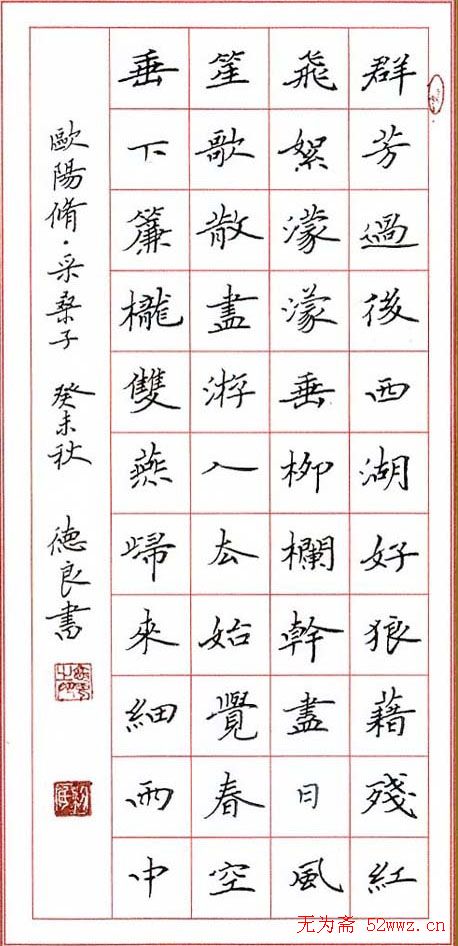 群芳過後西湖好狼藉殘紅
飛絮濛濛垂柳欄幹盡日風
笙歌散盡游人去始覺春空
垂下簾櫳雙燕歸來細雨中
歐陽脩·采桑子 癸未秋 德良書
无为斋 52wwz.cn